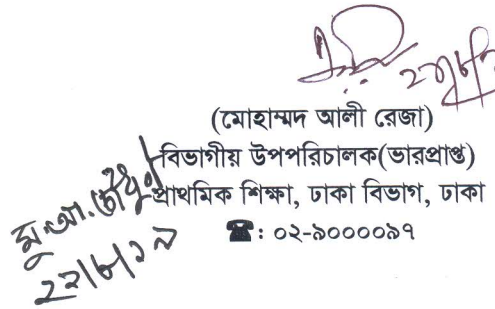 (মোহাম্মদ আলী রেজা)
বিভাগীয় উপপরিচালক(ভারপ্রাপ্ত)
প্রাথমিক শিক্ষা, ঢাকা বিভাগ, ঢাকা
☎: ০২-৯০০০০৯৭
মু.আ.